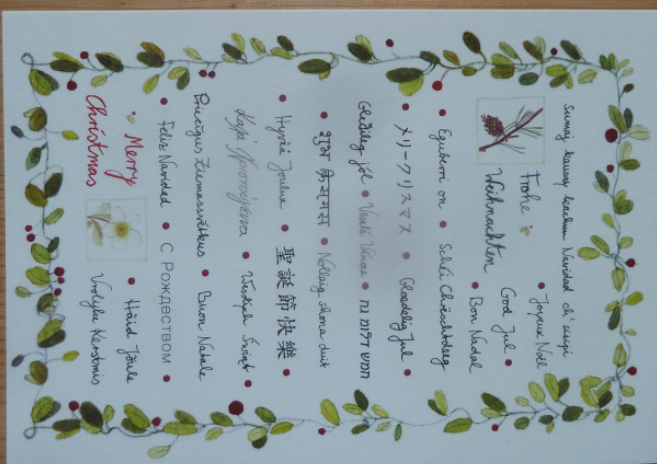 Sumaj kausay kachun Navidad
Frohe • Joyeux Noël
Weihnachten God Jul •
• Bon Nadal
• Eguberri on • Schéi Chrëschtdeeg
• メリークリスマス • Glædelig Jul •
Gleðileg jól •
• शुभ क्रिसमस • Nollaig shona duit
Hyvää Joulua • 聖誕節快樂 •
Καλά Χριστούγεννα • Wesołych Świąt •
Priecīgus Ziemassvētkus • Buon Natale
• Feliz Navidad • С РОЖДЕСТВОМ •
• Merry • Häid Jõule
Christmas Vrolijke Kerstmis